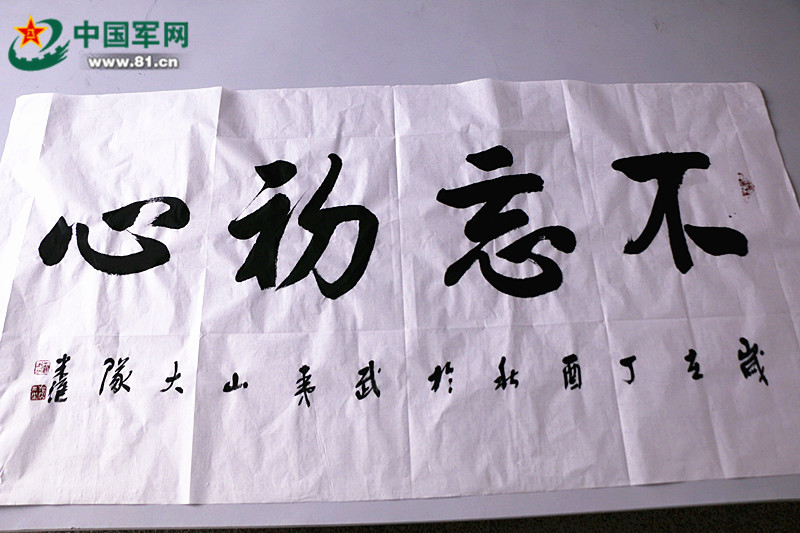 中国军网
www.81.cn
不忘初心
岁在丁酉秋于武夷山大队